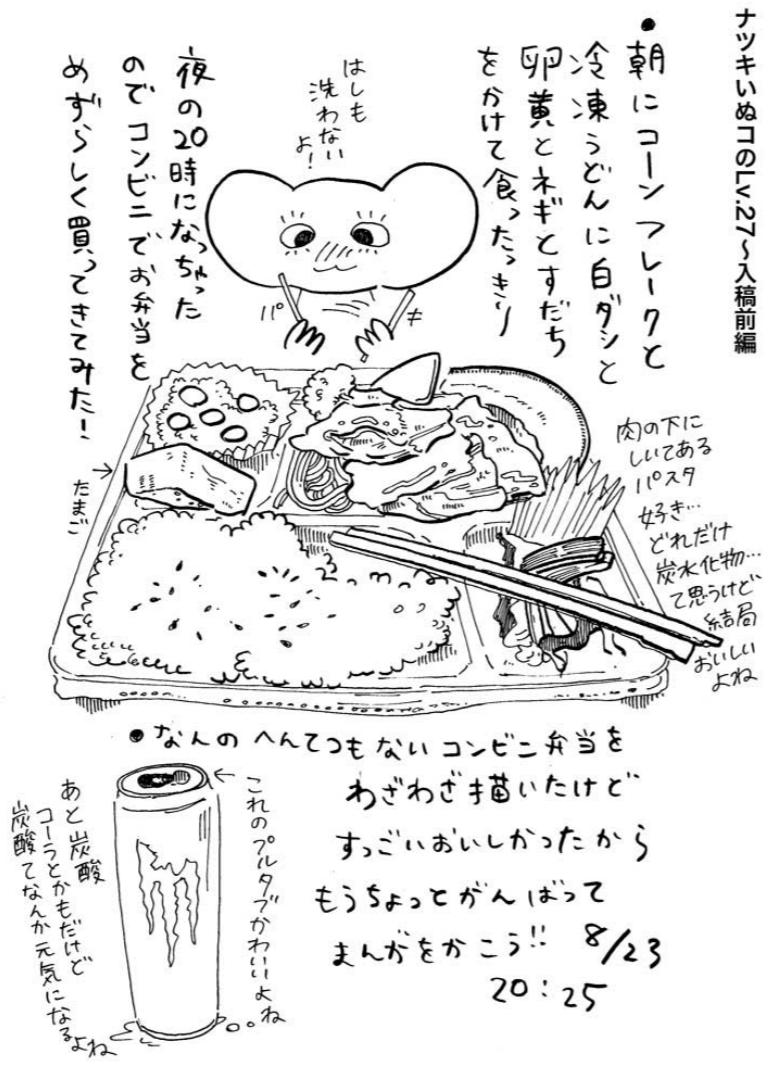 ナツキいぬコのLv.27〜入稿前編
●朝にコーンフレークと
冷凍うどんに白ダシと
卵黄とネギとすだち
をかけて食ったっきり
はしも
洗わない
よ!
夜の20時になっちゃった
のでコンビニでお弁当を
めずらしく買ってきてみた!
パ
キ
たまご
肉の下に
しいてある
パスタ
好き…
どれだけ
炭水化物…
て思うけど
結局
おいしい
よね
●なんのへんてつもないコンビニ弁当を
わざわざ描いたけど
すっごいおいしかったから
もうちょっとがんばって
まんがをかこう!! 8/23
20:25
これのプルタブかわいいよね
あと炭酸
コーラとかもだけど
炭酸てなんか元気になるよね